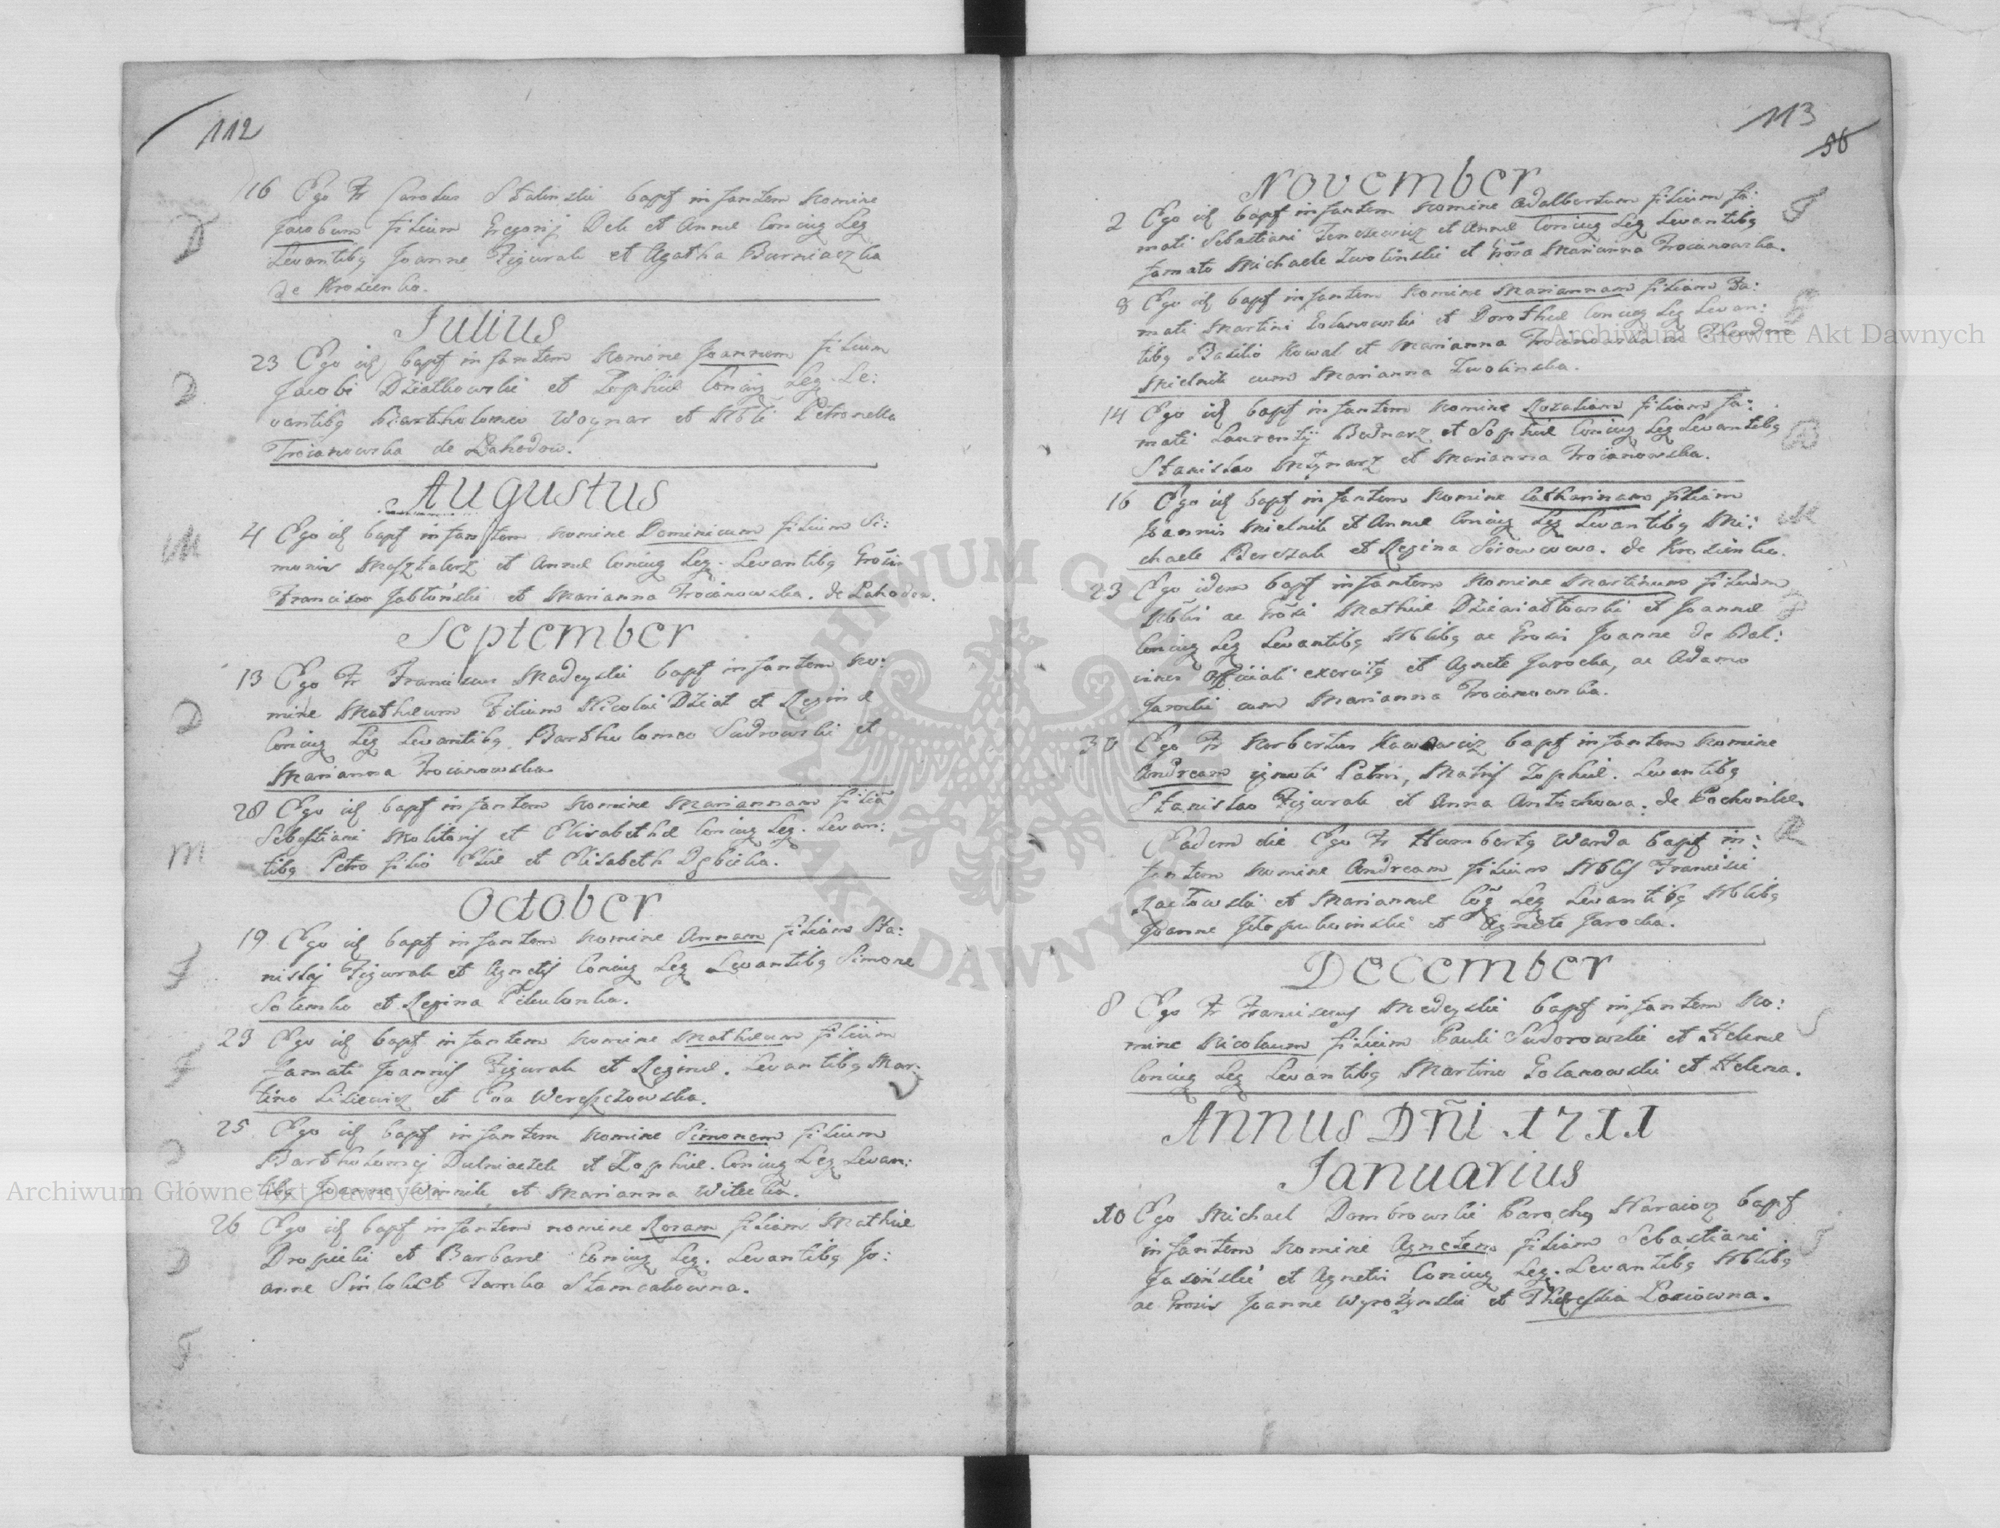 112
16 Ego Fr Carolus Stalinskie bapt infantem nomine
Jacobum filium Gregorij Dek et Annæ Coniug Leg
Levantibq Joanne Figurak et Agatha Burniaczka
de Krosienko.
Julius
23 Ego id bapt infantem nomine Joannem filium
Jacobi Dziatkowskie et Zophiæ Coniug Leg. Le:
vantibq Bartholomeo Woynar et Nbli Petronella
Troianowska de Dahodow.
Augustus
4 Ego id bapt infantem nomine Dominicum filium Si:
monis Masztalerz et Annæ Coniug Leg. Levantibq Grosis
Francisco Jabłoński et Marianna Troianowska. de Lahodow.
September
13 Ego Fr Franciscus Madeyskie bapt infantem no:
mine Mathæum Filium Nicolai Dziat et Reginæ
Coniug Leg Levantibq Bartholomeo Sudrowski et
Marianna Troianowska
28 Ego id bapt infantem nomine Mariannam filiã
Sebastiani Molitoris et Elisabethæ Coniug Leg. Levan:
tibq Petro filio Eliæ et Elisabeth Dębicka.
October
19 Ego id bapt infantem nomine Annam filiam Sta:
nislaj Figurak et Agnetis Coniug Leg Levantibq Simone
Solemko et Regina Pekulonka.
23 Ego id bapt infantem nomine Mathæum filium
Famati Joannis Figurak et Reginæ. Levantibq Mar:
tino Lisiewicz et Eva Wereszczowska.
25 Ego id bapt infantem nomine Simonem filium
Bartholomej Dulniaczek et Zophiæ. Coniug Leg Levan:
tibq Joanne Winnik et Marianna Witecka.
26 Ego id bapt infantem nomine Rosam filiam Mathiæ
Dropickie et Barbaræ Coniug Leg. Levantibq Jo:
anne Sinlokiet Tamka Stamcakowna.
113
56
November
2 Ego id bapt infantem nomine Adalbertum filium fa:
mati Sebastiani Jenczewicz et Annæ Coniug Leg Levantibq
famato Michaele Zwolinskie et Grosa Marianna Troianowska.
8 Ego id bapt infantem nomine Mariannam filiam Fa:
mati Martini Golanowskie et Dorotheæ Coniug Leg Levan:
tibq Basilio Kowal et Marianna Troianowska ac Theodoro
Mielnik cum Marianna Zwolinska.
14 Ego id bapt infantem nomine Rosaliam filiam Fa:
mati Laurentij Bednarz et Sophiæ Coniug Leg Levantibq
Stanislao Młynarz et Marianna Troianowska.
16 Ego id bapt infantem nomine Catharinam filiam
Joannis Mielnik et Annæ Coniug Leg Levantibq Mi:
chaele Berezak et Regina Sirowcowa. de Krosienko.
23 Ego idem bapt infantem nomine Martinum filium
Nblis ac Grosi Mathiæ Dziewiałtowski et Joannæ
Coniug Leg Levantibq Nblibq ac Grosis Joanne de Bal:
wier Officiali exercitq et Agnete Jarocka, ac Adamo
Jarockie cum Marianna Troianowska.
30 Ego Fr Norbertus Kawowicz bapt infantem nomine
Andream ignoti Patris, Matris Zophiæ. Levantibq
Stanislao Figurak et Anna Antechowa. de Pochorilce.
Eadem die Ego Fr Humbertq Warda bapt in:
fantem nomine Andream filium Nblis Francisci
Raetowski et Mariannæ Cõg Leg Levantibq Nblibq
Joanne Hłopukowinskie et Agnete Jarocka.
December
8 Ego Fr Franciscus Madeyskie bapt infantem no:
mine Nicolaum filium Pauli Sudorowskie et Helenæ
Coniug Leg Levantibq Martino Golanowskie et Helena.
Annus Dñi 1711
Januarius
10 Ego Michael Dombrowskie Parochq Naraiocz bapt
infantem nomine Agnetem filiam Sebastiani
Jasińskie et Agnetis Coniug Leg. Levantibq Nblibq
ac Grosis Joanne Wyrożynskie et Theressia Łosiowna.
Archiwum Główne Akt Dawnych
Archiwum Główne Akt Dawnych
ARCHIWUM GŁÓWNE AKT DAWNYCH